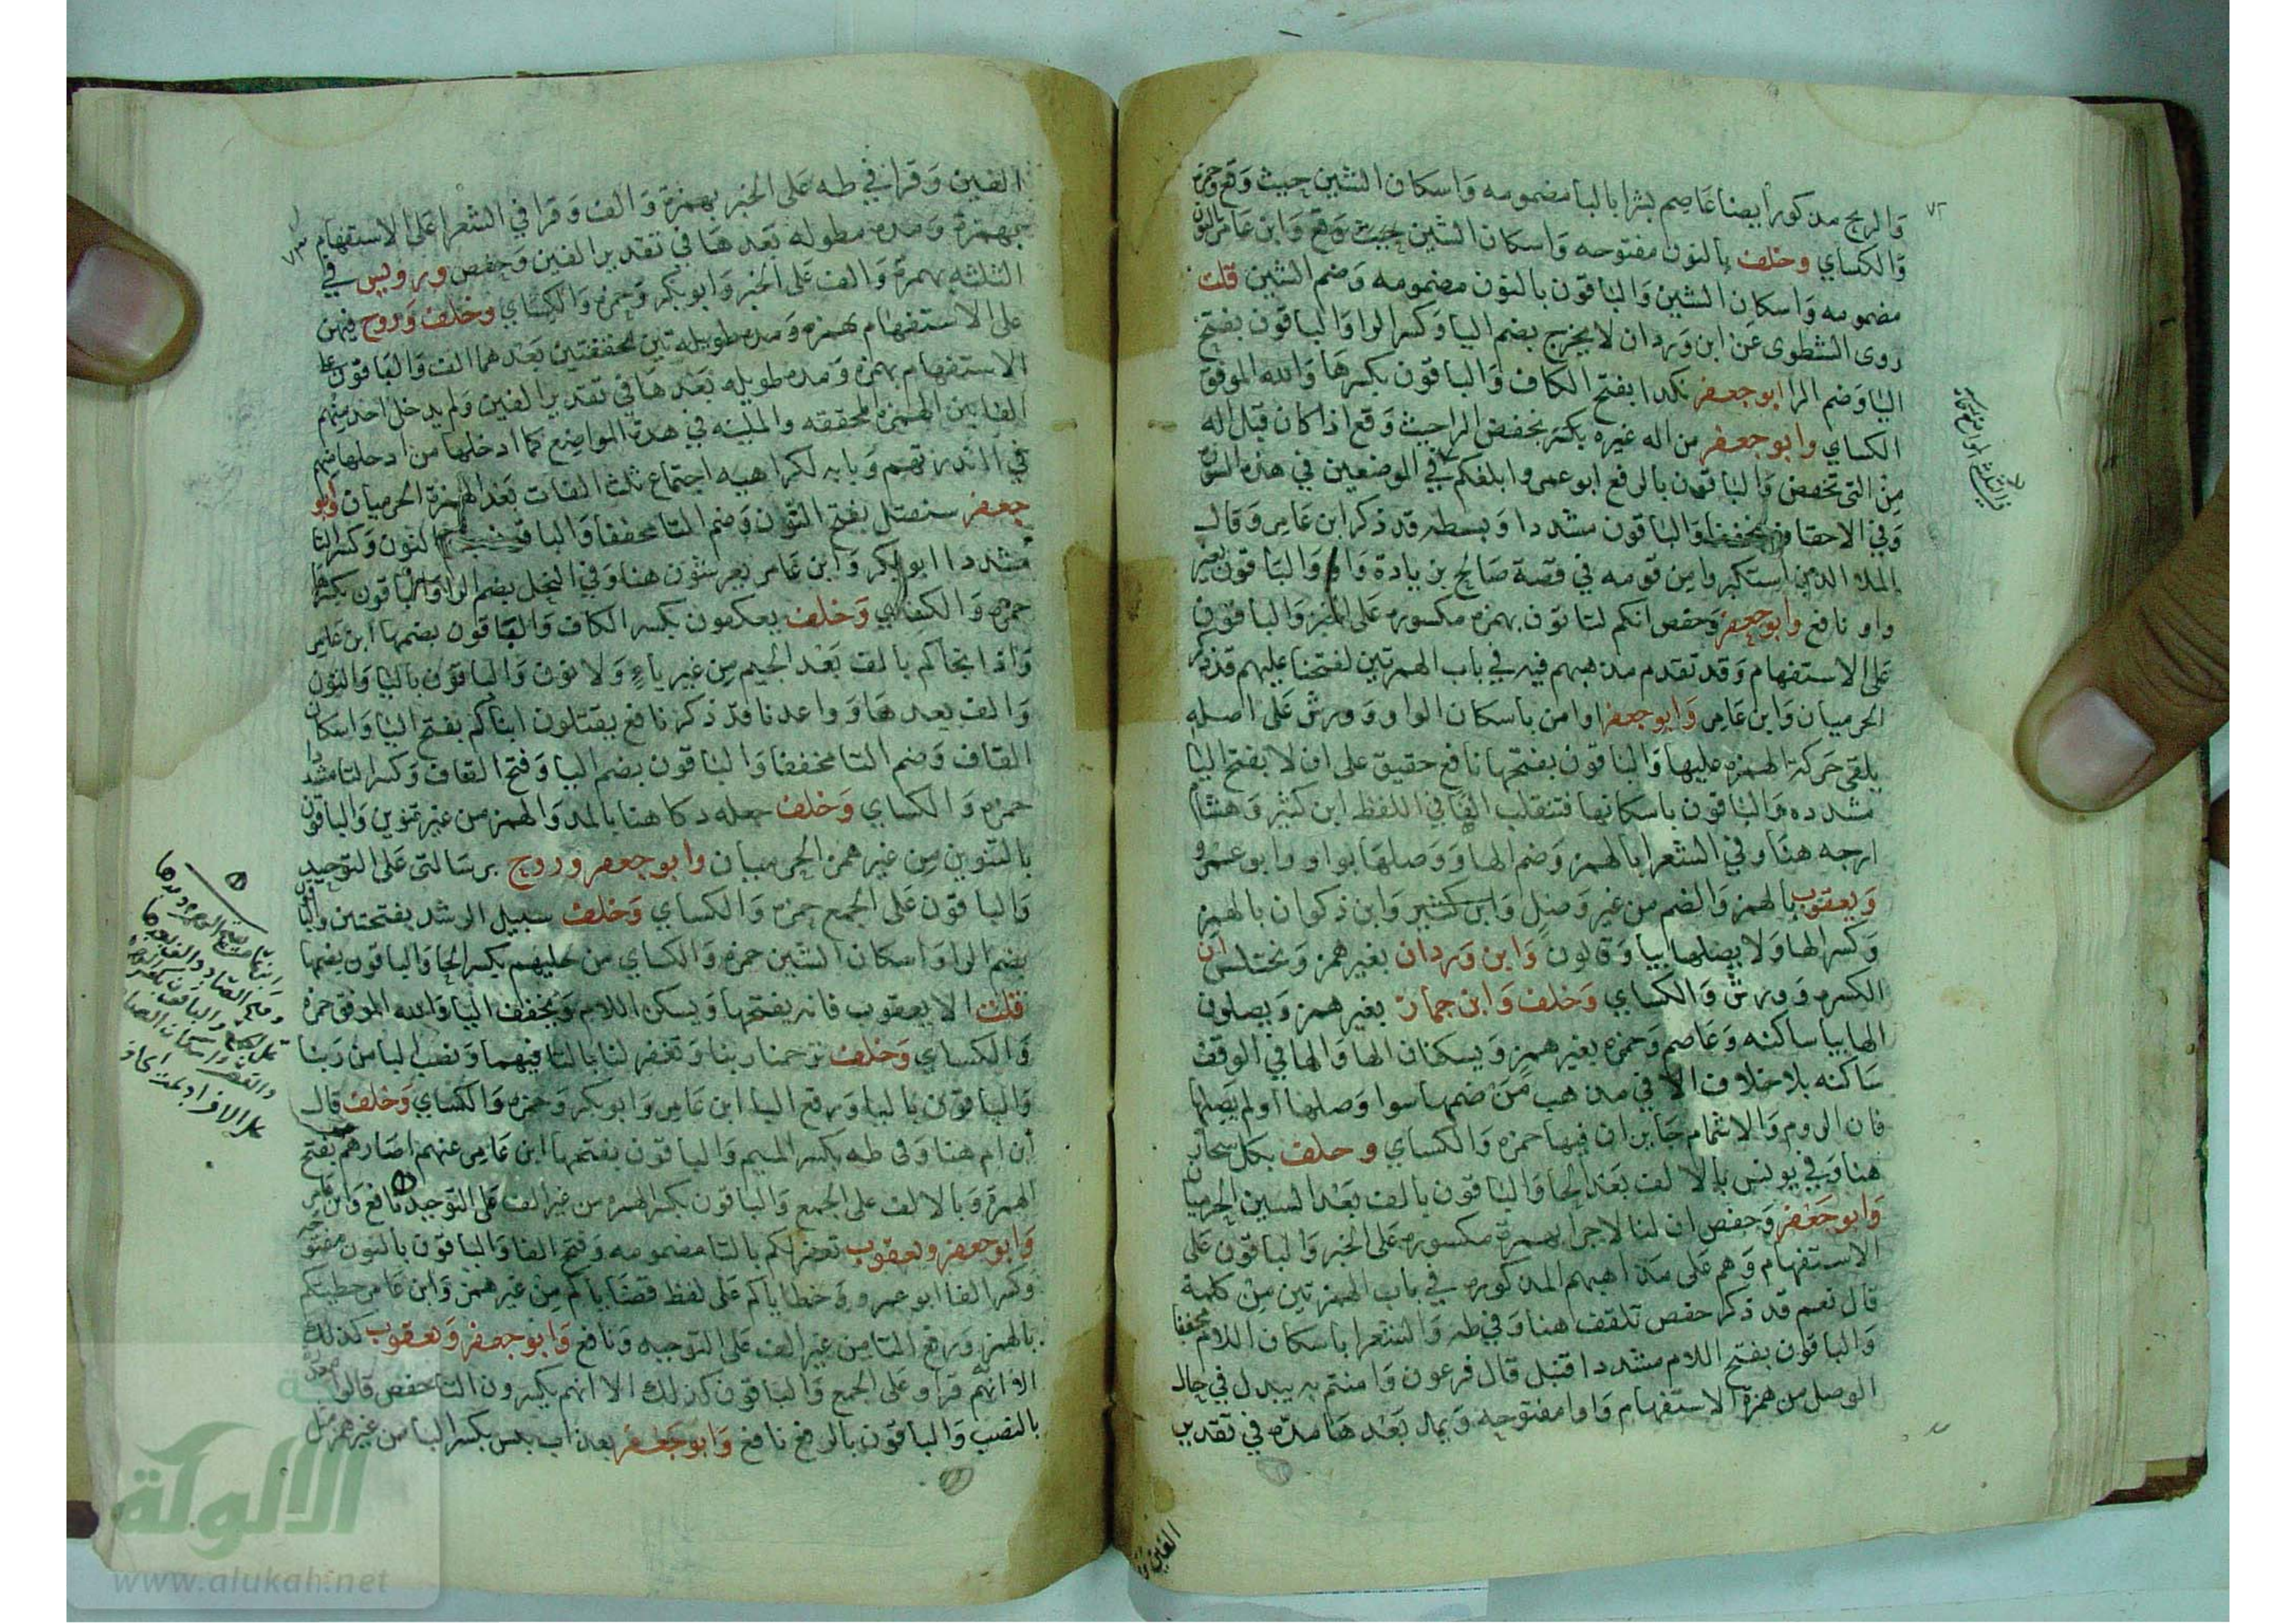 ٧٢
والريح مذكور أيضا عاصم بشرا بالبا مضمومه واسكان الشين حيث وقع وحمزه
والكساي وخلف بالنون مفتوحه واسكان الشين حيث وقع وابن عامر بالنون
مضمومه واسكان الشين والباقون بالنون مضمومه وضم الشين قلت
روى الشطوى عن ابن وردان لا يخرج بضم اليا وكسر الرا والباقون بفتح
اليا وضم الرا ابو جعفر نكدا بفتح الكاف والباقون بكسرها والله الموفق
الكساي وابو جعفر من اله غيره بكسر بخفض الرا حيث وقع اذا كان قبل اله
من التى تخفض والباقون بالرفع ابو عمرو ابلغكم في الموضعين في هذه السورة
وفي الاحقاف مخففا والباقون مشددا وبسطه قد ذكر ابن عامر وقال
الملا الذين استكبروا من قومه في قصة صالح بزيادة واو والباقون بغير
واو نافع وابو جعفر وحفص انكم لتاتون بهمزه مكسوره على الخبر والباقون
على الاستفهام وقد تقدم مذهبهم فيه في باب الهمزتين لفتحنا عليهم قد ذكر
الحرميان وابن عامر وابو جعفر اوامن باسكان الواو وورش على اصله
يلقى حركة الهمزه عليها والباقون بفتحها نافع حقيق على ان لا بفتح اليا
مشدده والباقون باسكانها فتنقلب الفا في اللفظ ابن كثير وهشام
ارجه هنا وفي الشعرا بالهمز وضم الها ووصلها بواو وابو عمرو
ويعقوب بالهمز والضم من غير وصل وابن كثير وابن ذكوان بالهمز
وكسر الها ولا يصلها بيا وقالون وابن وردان بغير همز ويختلسان
الكسره وورش والكساي وخلف وابن جماز بغير همز ويصلون
الها بيا ساكنه وعاصم وحمزه بغير همز ويسكنان الها والها في الوقف
ساكنه بلا خلاف الا في مذهب من ضمها سوا وصلها او لم يصلها
فان الروم والاشمام جايزان فيها حمزه والكساي وخلف بكل سحار
هنا وفي يونس بالالف بعد الحا والباقون بالف بعد السين الحرميان
وابو جعفر وحفص ان لنا لاجرا بهمزة مكسوره على الخبر والباقون على
الاستفهام وهم على مذاهبهم المذكوره في باب الهمزتين من كلمة
قال نعم قد ذكر حفص تلقف هنا وفي طه والشعرا باسكان اللام مخففا
والباقون بفتح اللام مشددا قنبل قال فرعون وامنتم به يبدل في حال
الوصل من همزة الاستفهام واوا مفتوحه ويمد بعدها مده في تقدير
الفين و
٧٣
الفين وقرا في طه على الخبر بهمزة والف وقرا في الشعرا على الاستفهام
بهمزة ومده مطوله بعدها في تقدير الفين وحفص ورويس في
الثلثه بهمزة والف على الخبر وابو بكر وحمزه والكساي وخلف وروح فيهن
على الاستفهام بهمزتين محققتين بعدهما الف والباقون على
الاستفهام بهمزه ومده طويله بعدها في تقدير الفين ولم يدخل احد منهم
الفا بين الهمزة المحققه والملينه في هذه المواضع كما ادخلها من ادخلها منهم
في اانذرتهم وبابه لكراهيه اجتماع ثلث الفات بعد الهمزة الحرميان وابو
جعفر سنقتل بفتح النون وضم التا مخففا والباقون بضم النون وكسر التا
مشددا ابو بكر وابن عامر يعرشون هنا وفي النحل بضم الرا والباقون بكسرها
حمزه والكساي وخلف يعكفون بكسر الكاف والباقون بضمها ابن عامر
واذ انجاكم بالف بعد الجيم من غير ياء ولا نون والباقون باليا والنون
والف بعدها وواعدنا قد ذكر نافع يقتلون ابناكم بفتح اليا واسكان
القاف وضم التا مخففا والباقون بضم اليا وفتح القاف وكسر التا مشددا
حمزه والكساي وخلف جعله دكا هنا بالمد والهمز من غير تنوين والباقون
بالتنوين من غير همز الحرميان وابو جعفر وروح برسالتى على التوحيد
والباقون على الجمع حمزه والكساي وخلف سبيل الرشد بفتحتين والباقون
بضم الرا واسكان الشين حمزه والكساي من حليهم بكسر الحا والباقون بضمها
قلت الا يعقوب فانه يفتحها ويسكن اللام ويخفف اليا والله الموفق حمزه
والكساي وخلف ترحمنا ربنا وتغفر لنا بالتا فيهما ونصب البا من ربنا
والباقون باليا ورفع البا ابن عامر وابو بكر وحمزه والكساي وخلف قال
ابن ام هنا وفى طه بكسر الميم والباقون بفتحها ابن عامر عنهم اصارهم بفتح
الهمزة وبالالف على الجمع والباقون بكسر الهمزه من غير الف على التوحيد نافع وابن عامر
وابو جعفر ويعقوب تغفر لكم بالتا مضمومه وفتح الفا والباقون بالنون مفتوحه
وكسر الفا ابو عمرو خطاياكم على لفظ قضاياكم من غير همز وابن عامر خطيتكم
بالهمز ورفع التا من غير الف على التوحيد ونافع وابو جعفر ويعقوب كذلك
الا انهم قراو على الجمع والباقون كذلك الا انهم يكسرون التا حفص قالوا معذرة
بالنصب والباقون بالرفع نافع وابو جعفر بعذاب بيس بكسر البا من غير همز مثل
الالوكة
www.alukah.net